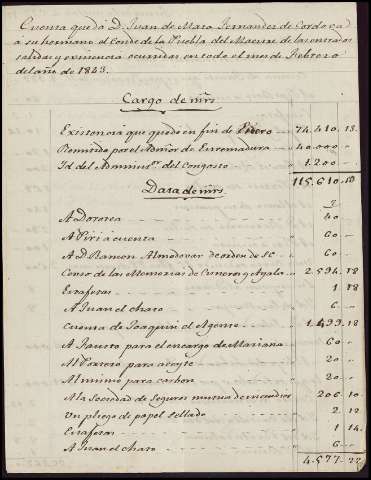 Cuenta que dá D. Juan de Mata Fernandez de Cordova
á su hermano el Conde de la Puebla del Maestre de las entradas
salidas y existencia ocurridas en todo el mes de Febrero
del año de 1843.
Cargo de mrs
Existencia que quedó en fin de Enero 74.410. 18.
Remitido por el Admor de Extremadura 40.000 "
Id del Administor. del Congosto 1.200 "
115.610. 18
Data de mrs
A Dorotea 40
A Piri á cuenta 60
A D. Ramon Almodovar de orden de SC 60
Censo de las Memorias de Cisneros y Ayala 2.594. 18
Estafetas 1 18
A Juan el chato 6
Cuenta de Joaquin el Agente 1.499. 18
A Fausto para el encargo de Mariana 60
Al Portero para aceyte 20
Al mismo para carbon 20
A la Sociedad de Seguros mutuos de incendios 206. 10
Un pliego de papel sellado 2. 12
Estafetas 1 14
A Juan el chato 6
4.577. 22